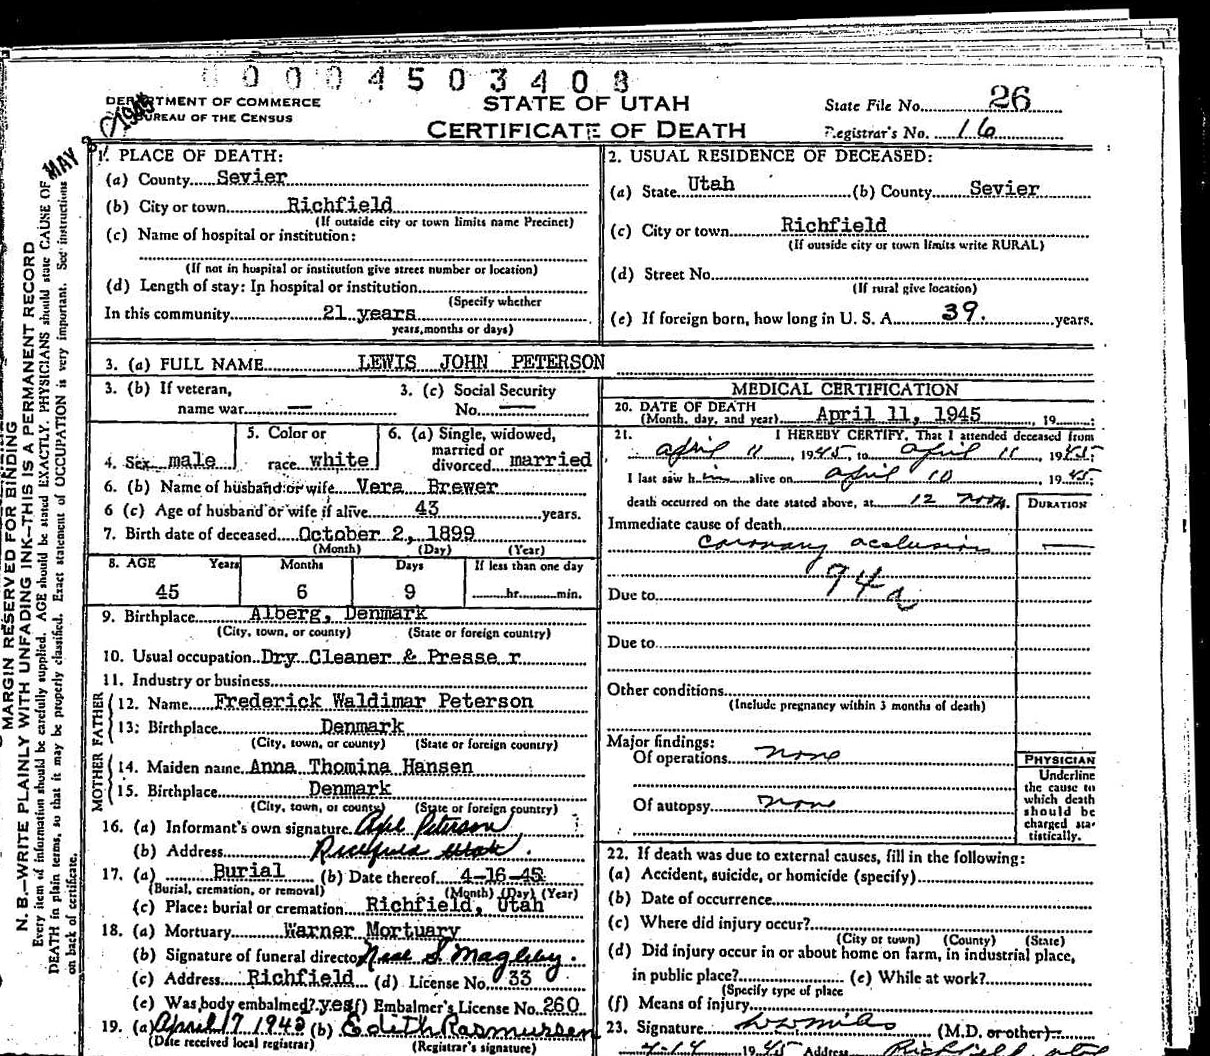 00004503408
DEPARTMENT OF COMMERCE
BUREAU OF THE CENSUS
STATE OF UTAH
CERTIFICATE OF DEATH
State File No. 26
Registrar's No. 16
MAY 1945
MARGIN RESERVED FOR BINDING
N. B.—WRITE PLAINLY WITH UNFADING INK—THIS IS A PERMANENT RECORD
Every item of information should be carefully supplied. AGE should be stated EXACTLY. PHYSICIANS should state CAUSE OF
DEATH in plain terms, so that it may be properly classified. Exact statement of OCCUPATION is very important. See instructions
on back of certificate.
1. PLACE OF DEATH:
(a) County Sevier
(b) City or town Richfield
(If outside city or town limits name Precinct)
(c) Name of hospital or institution:
(If not in hospital or institution give street number or location)
(d) Length of stay: In hospital or institution
(Specify whether
In this community 21 years
years, months or days)
2. USUAL RESIDENCE OF DECEASED:
(a) State Utah (b) County Sevier
(c) City or town Richfield
(If outside city or town limits write RURAL)
(d) Street No.
(If rural give location)
(e) If foreign born, how long in U. S. A. 39. years.
3. (a) FULL NAME LEWIS JOHN PETERSON
3. (b) If veteran, name war —
3. (c) Social Security No. —
4. Sex male
5. Color or race white
6. (a) Single, widowed, married or divorced married
6. (b) Name of husband or wife Vera Brewer
6 (c) Age of husband or wife if alive 43 years.
7. Birth date of deceased October 2, 1899
(Month) (Day) (Year)
8. AGE Years Months Days If less than one day
45 6 9 hr. min.
9. Birthplace Alberg, Denmark
(City, town, or county) (State or foreign country)
10. Usual occupation Dry Cleaner & Presse r
11. Industry or business
FATHER
12. Name Frederick Waldimar Peterson
13. Birthplace Denmark
(City, town, or county) (State or foreign country)
MOTHER
14. Maiden name Anna Thomina Hansen
15. Birthplace Denmark
(City, town, or county) (State or foreign country)
16. (a) Informant's own signature Peterson
(b) Address Richfield Utah.
17. (a) Burial (b) Date thereof 4-16-45
(Burial, cremation, or removal) (Month) (Day) (Year)
(c) Place: burial or cremation Richfield, Utah
18. (a) Mortuary Warner Mortuary
(b) Signature of funeral director S. Magleby.
(c) Address Richfield (d) License No. 33
(e) Was body embalmed? yes (f) Embalmer's License No. 260
19. (a) April 17 (b) Edith Rasmussen
(Date received local registrar) (Registrar's signature)
MEDICAL CERTIFICATION
20. DATE OF DEATH
(Month, day, and year) April 11, 1945, 19
21. I HEREBY CERTIFY, That I attended deceased from
april 11, 1945, to april 11, 1945;
I last saw him alive on april 10, 1945;
death occurred on the date stated above, at 12 noon.
DURATION
Immediate cause of death
coronary occlusion —
94a
Due to
Due to
Other conditions
(Include pregnancy within 3 months of death)
Major findings:
Of operations none
Of autopsy none
PHYSICIAN
Underline
the cause to
which death
should be
charged sta-
tistically.
22. If death was due to external causes, fill in the following:
(a) Accident, suicide, or homicide (specify)
(b) Date of occurrence
(c) Where did injury occur?
(City or town) (County) (State)
(d) Did injury occur in or about home on farm, in industrial place,
in public place? (e) While at work?
(Specify type of place
(f) Means of injury
23. Signature (M.D. or other)
4-14 1945 Address Richfield, Utah